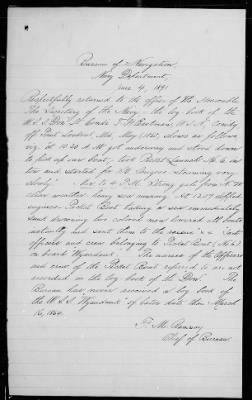 Bureau of Navigation,
Navy Department,
June 4, 1891.
Respectfully returned to the office of the Honorable
The Secretary of the Navy. The log book of the
U.S.S. Don, Lt. Comdr T. H. Eastman, U.S.N.,
off Point Lookout, Md. May 1, 1865, shows as follows
viz: "At 10.30 A.M. got underway and stood down
to pick up our boat, took Picket Launch No. 6 in
tow and started for St Inigoes steaming very
slowly." "4 to 6 P.M. Strong gale from N.
thence weather, heavy sea making. At stopped
engines Picket Boat taking in sea
Sent drowning two colored men lowered all boats
but sent them to the rescue" "Took
officers and crew belonging to Picket Boat, (No. 6)
on board Wyandank." The names of the Officers
and crew of the Picket Boat referred to are not
recorded in the log book of the "Don". The
Bureau has never received a log book of
the U.S.S. "Wyandank" of later date than March
16, 1864.
F. M. Ramsay
Chief of Bureau.